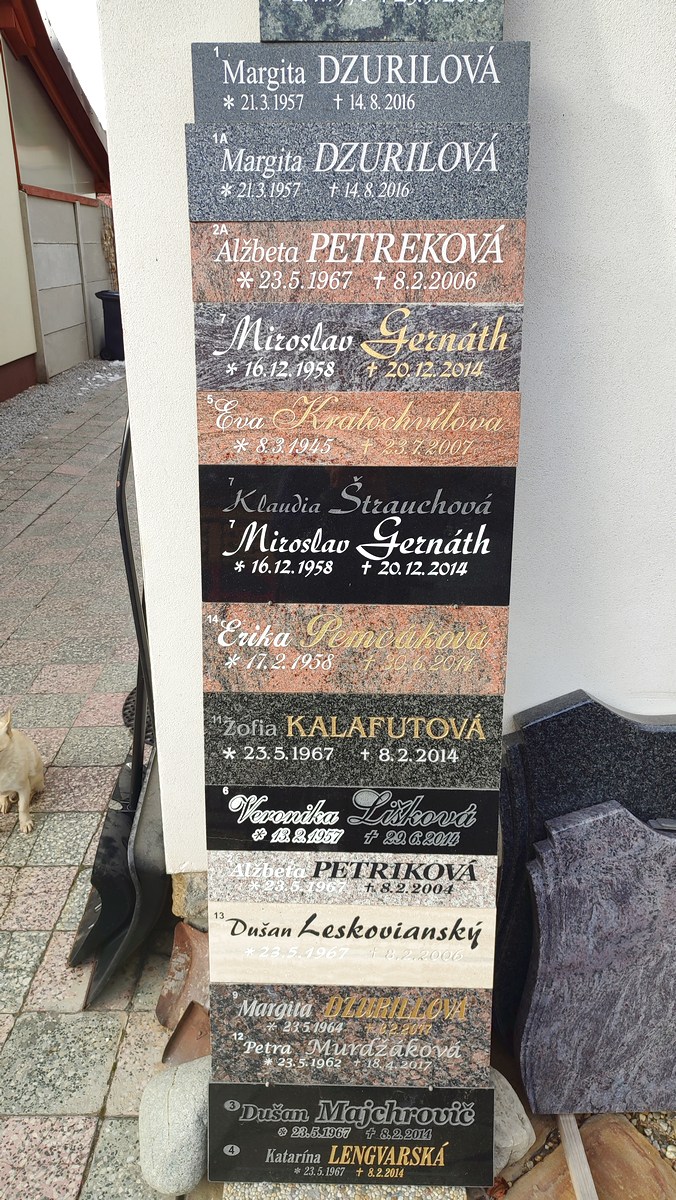 1 Margita DZURILOVÁ
* 21.3.1957 † 14.8.2016
1A Margita DZURILOVÁ
* 21.3.1957 † 14.8.2016
2A Alžbeta PETREKOVÁ
* 23.5.1967 † 8.2.2006
7 Miroslav Gernáth
* 16.12.1958 † 20.12.2014
5 Eva Kratochvílova
* 8.3.1945 † 23.7.2007
7 Klaudia Štrauchová
7 Miroslav Gernáth
* 16.12.1958 † 20.12.2014
14 Erika Pemcáková
* 17.2.1958 † 30.6.2014
11 Žofia KALAFUTOVÁ
* 23.5.1967 † 8.2.2014
6 Veronika Lišková
* 13.2.1957 † 29.6.2014
2 Alžbeta PETRIKOVÁ
* 23.5.1967 † 8.2.2004
13 Dušan Leskovianský
* 23.5.1967 † 8.2.2006
9 Margita DZURILLOVÁ
* 23.5.1964 † 8.2.2017
12 Petra Murdžáková
* 23.5.1962 † 18.4.2017
3 Dušan Majchrovič
* 23.5.1967 † 8.2.2014
4 Katarína LENGVARSKÁ
* 23.5.1967 † 8.2.2014